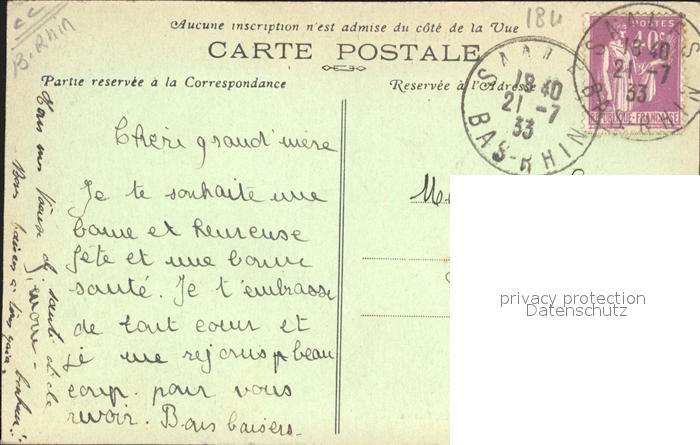 cc
B-Rhin
184
Aucune inscription n'est admise du côté de la Vue
CARTE POSTALE
Partie reservée à la Correspondance
Reservée à l'Adresse
POSTES
40c
RÉPUBLIQUE-FRANÇAISE
18 40
21 -7
33
BAS-RHIN
18 40
21 -7
33
BAS-RHIN
Chère grand'mère
Je te souhaite une
bonne et heureuse
fête et une bonne
santé. Je t'embrasse
de tout cœur et
je me rejouis beau
coup pour vous
revoir. Bons baisers.
Tous nos vœux de santé et de
Bons baisers à
privacy protection
Datenschutz